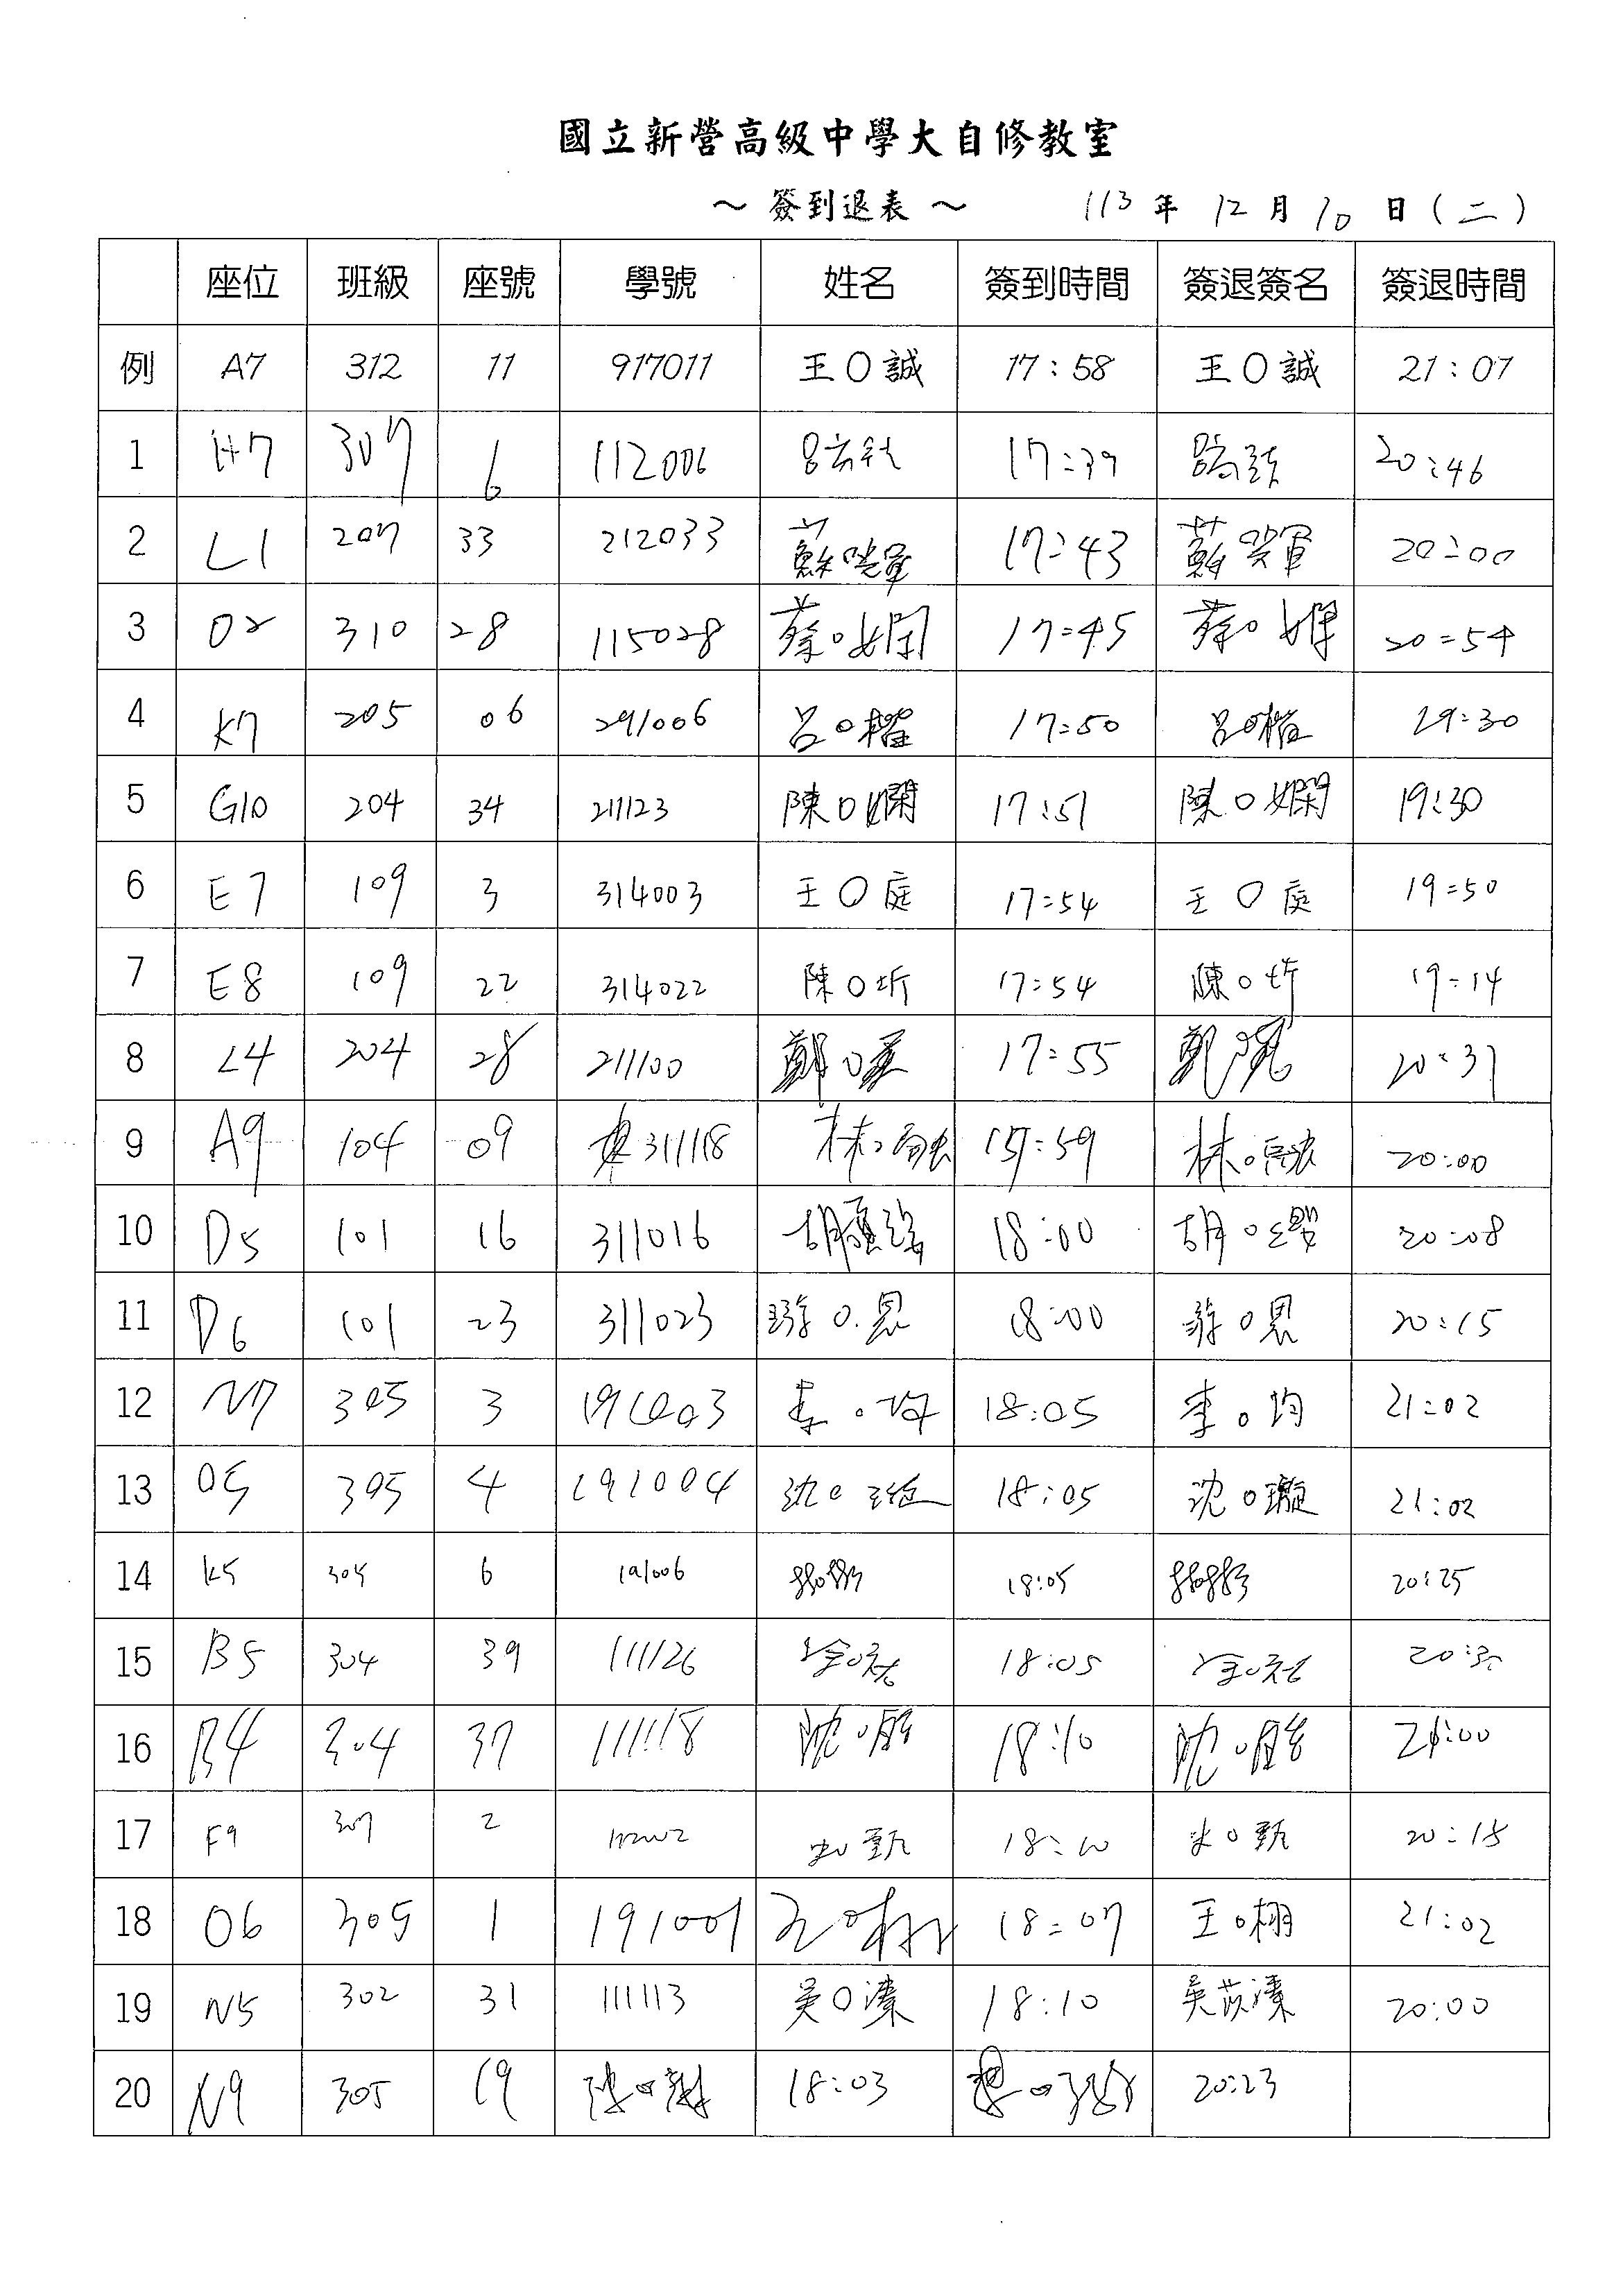 國立新營高級中學大自修教室
～ 簽到退表 ～ 113 年 12 月 10 日 (二)
座位 班級 座號 學號 姓名 簽到時間 簽退簽名 簽退時間
例 A7 312 11 917011 王○誠 17:58 王○誠 21:07
1 H7 307 6 112006 17:39 20:46
2 L1 207 33 212033 17:43 20:00
3 O2 310 28 115028 蔡○嫻 17:45 蔡○嫻 20:54
4 K7 205 06 291006 呂○楷 17:50 呂○楷 29:30
5 G10 204 34 211123 陳○嫻 17:51 陳○嫻 19:30
6 E7 109 3 314003 王○庭 17:54 王○庭 19:50
7 E8 109 22 314022 陳○圻 17:54 陳○圻 19:14
8 L4 204 28 211100 鄭○ 17:55 鄭 20:31
9 A9 104 09 311118 林○融 17:59 林○融 20:00
10 D5 101 16 311016 胡 18:00 胡○ 20:08
11 D6 101 23 311023 游○恩 18:00 游○恩 20:15
12 N7 305 3 191003 李○均 18:05 李○均 21:02
13 O5 305 4 191004 沈○璇 18:05 沈○璇 21:02
14 K5 305 6 191006 18:05 20:25
15 B5 304 39 111126 18:05 20:30
16 B4 304 37 111118 沈○ 18:10 沈○ 21:00
17 F9 307 2 112002 18:10 20:15
18 O6 305 1 191001 王○栩 18:07 王○栩 21:02
19 N5 302 31 111113 吳○溱 18:10 吳苡溱 20:00
20 N9 305 19 18:03 20:23